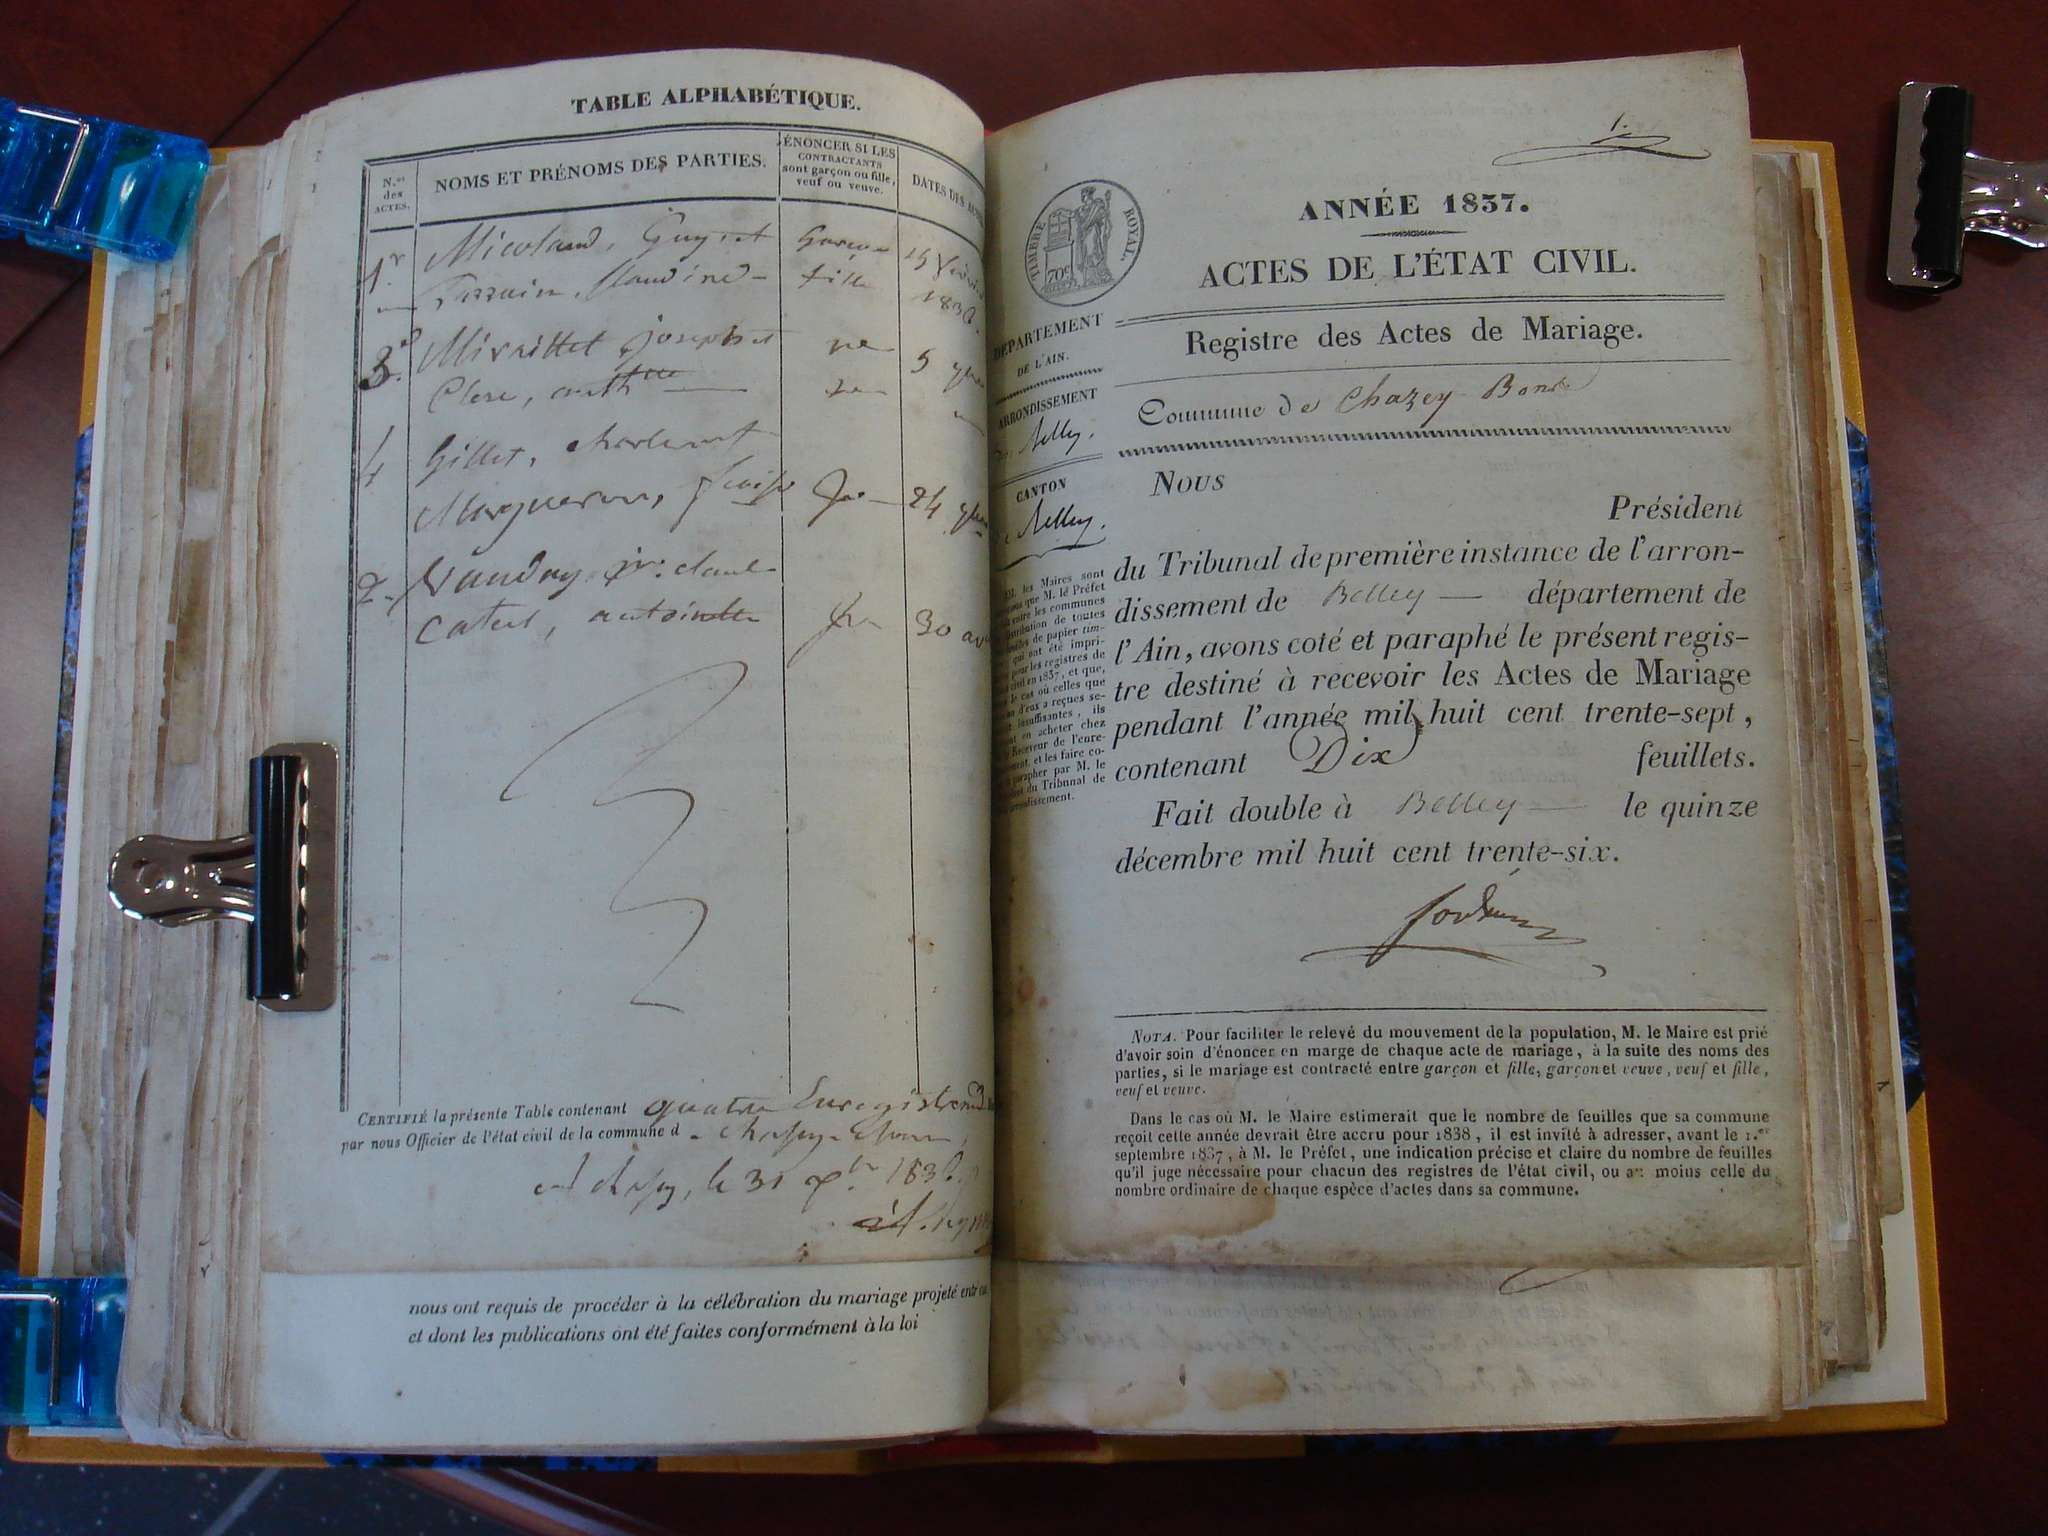 TABLE ALPHABÉTIQUE.
N.os des ACTES.
NOMS ET PRÉNOMS DES PARTIES.
ÉNONCER SI LES
CONTRACTANTS
sont garçon ou fille,
veuf ou veuve.
DATES DES ACTES
1r Micoland, garçon 15
fille 1836.
3e Miraillet joseph et 5
Clerc,
4 Gillet,
24
2. Vaudray claude
antoinette 30
CERTIFIÉ la présente Table contenant quatre Enregistrem
par nous Officier de l'état civil de la commune d
le 31 1836
nous ont requis de procéder à la célébration du mariage projeté entr
et dont les publications ont été faites conformément à la loi
1.
TIMBRE ROYAL.
70c
ANNÉE 1837.
ACTES DE L'ÉTAT CIVIL.
DÉPARTEMENT
DE L'AIN.
ARRONDISSEMENT
Belley.
CANTON
Belley.
Registre des Actes de Mariage.
Commune de Chazey Bons
MM. les Maires sont
que M. le Préfet
entre les communes
distribution de toutes
de papier tim-
qui ont été impri-
pour les registres de
civil en 1837, et que,
le cas où celles que
d'eux a reçues se-
insuffisantes, ils
en acheter chez
Receveur de l'enre-
et les faire co-
parapher par M. le
du Tribunal de
NOUS
Président
du Tribunal de première instance de l'arron-
dissement de Belley département de
l'Ain, avons coté et paraphé le présent regis-
tre destiné à recevoir les Actes de Mariage
pendant l'année mil huit cent trente-sept,
contenant Dix feuillets.
Fait double à Belley le quinze
décembre mil huit cent trente-six.
NOTA. Pour faciliter le relevé du mouvement de la population, M. le Maire est prié
d'avoir soin d'énoncer en marge de chaque acte de mariage, à la suite des noms des
parties, si le mariage est contracté entre garçon et fille, garçon et veuve, veuf et fille,
veuf et veuve.
Dans le cas où M. le Maire estimerait que le nombre de feuilles que sa commune
reçoit cette année devrait être accru pour 1838, il est invité à adresser, avant le 1.er
septembre 1837, à M. le Préfet, une indication précise et claire du nombre de feuilles
qu'il juge nécessaire pour chacun des registres de l'état civil, ou au moins celle du
nombre ordinaire de chaque espèce d'actes dans sa commune.